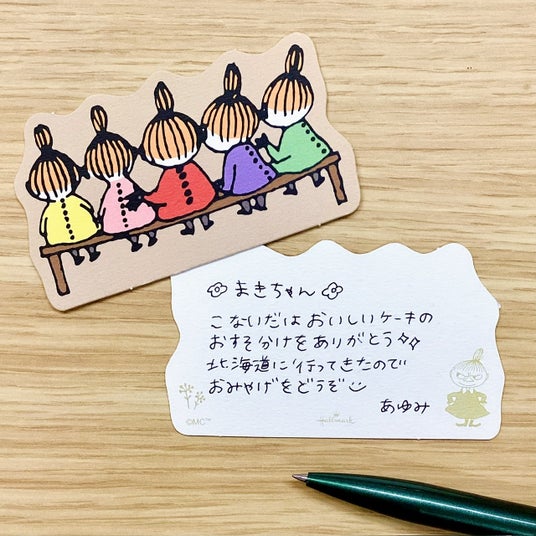 まきちゃん
こないだはおいしいケーキの
おすそ分けをありがとう✧✧
北海道に行ってきたので
おみやげをどうぞ
あゆみ
©MC™
Hallmark